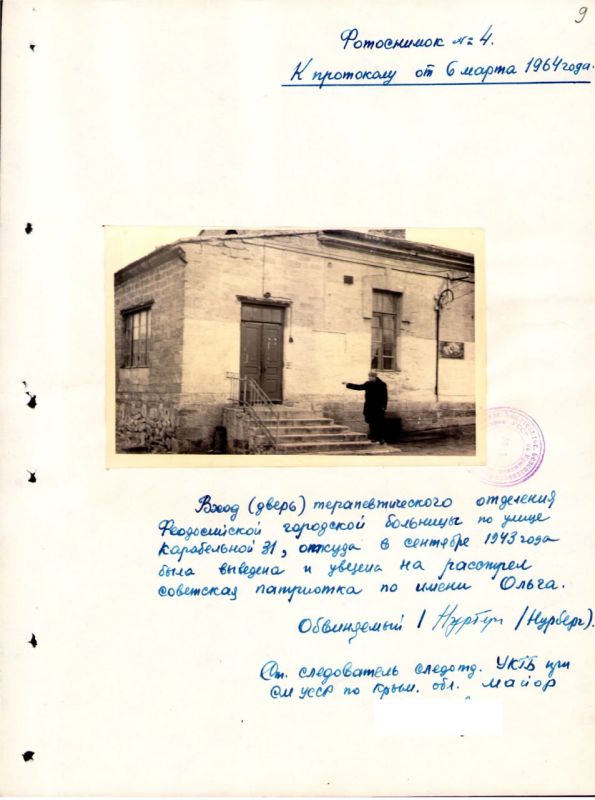 9
Фотоснимок № 4.
К протоколу от 6 марта 1964 года.
Вход (дверь) терапевтического отделения
Феодосийской городской больницы по улице
Карабельной 31, откуда в сентябре 1943 года
была выведена и увезена на расстрел
советская патриотка по имени Ольга.
Обвиняемый / /Нурберг).
Ст. следователь следотд. УКГБ при
СМ УССР по Крым. обл. майор